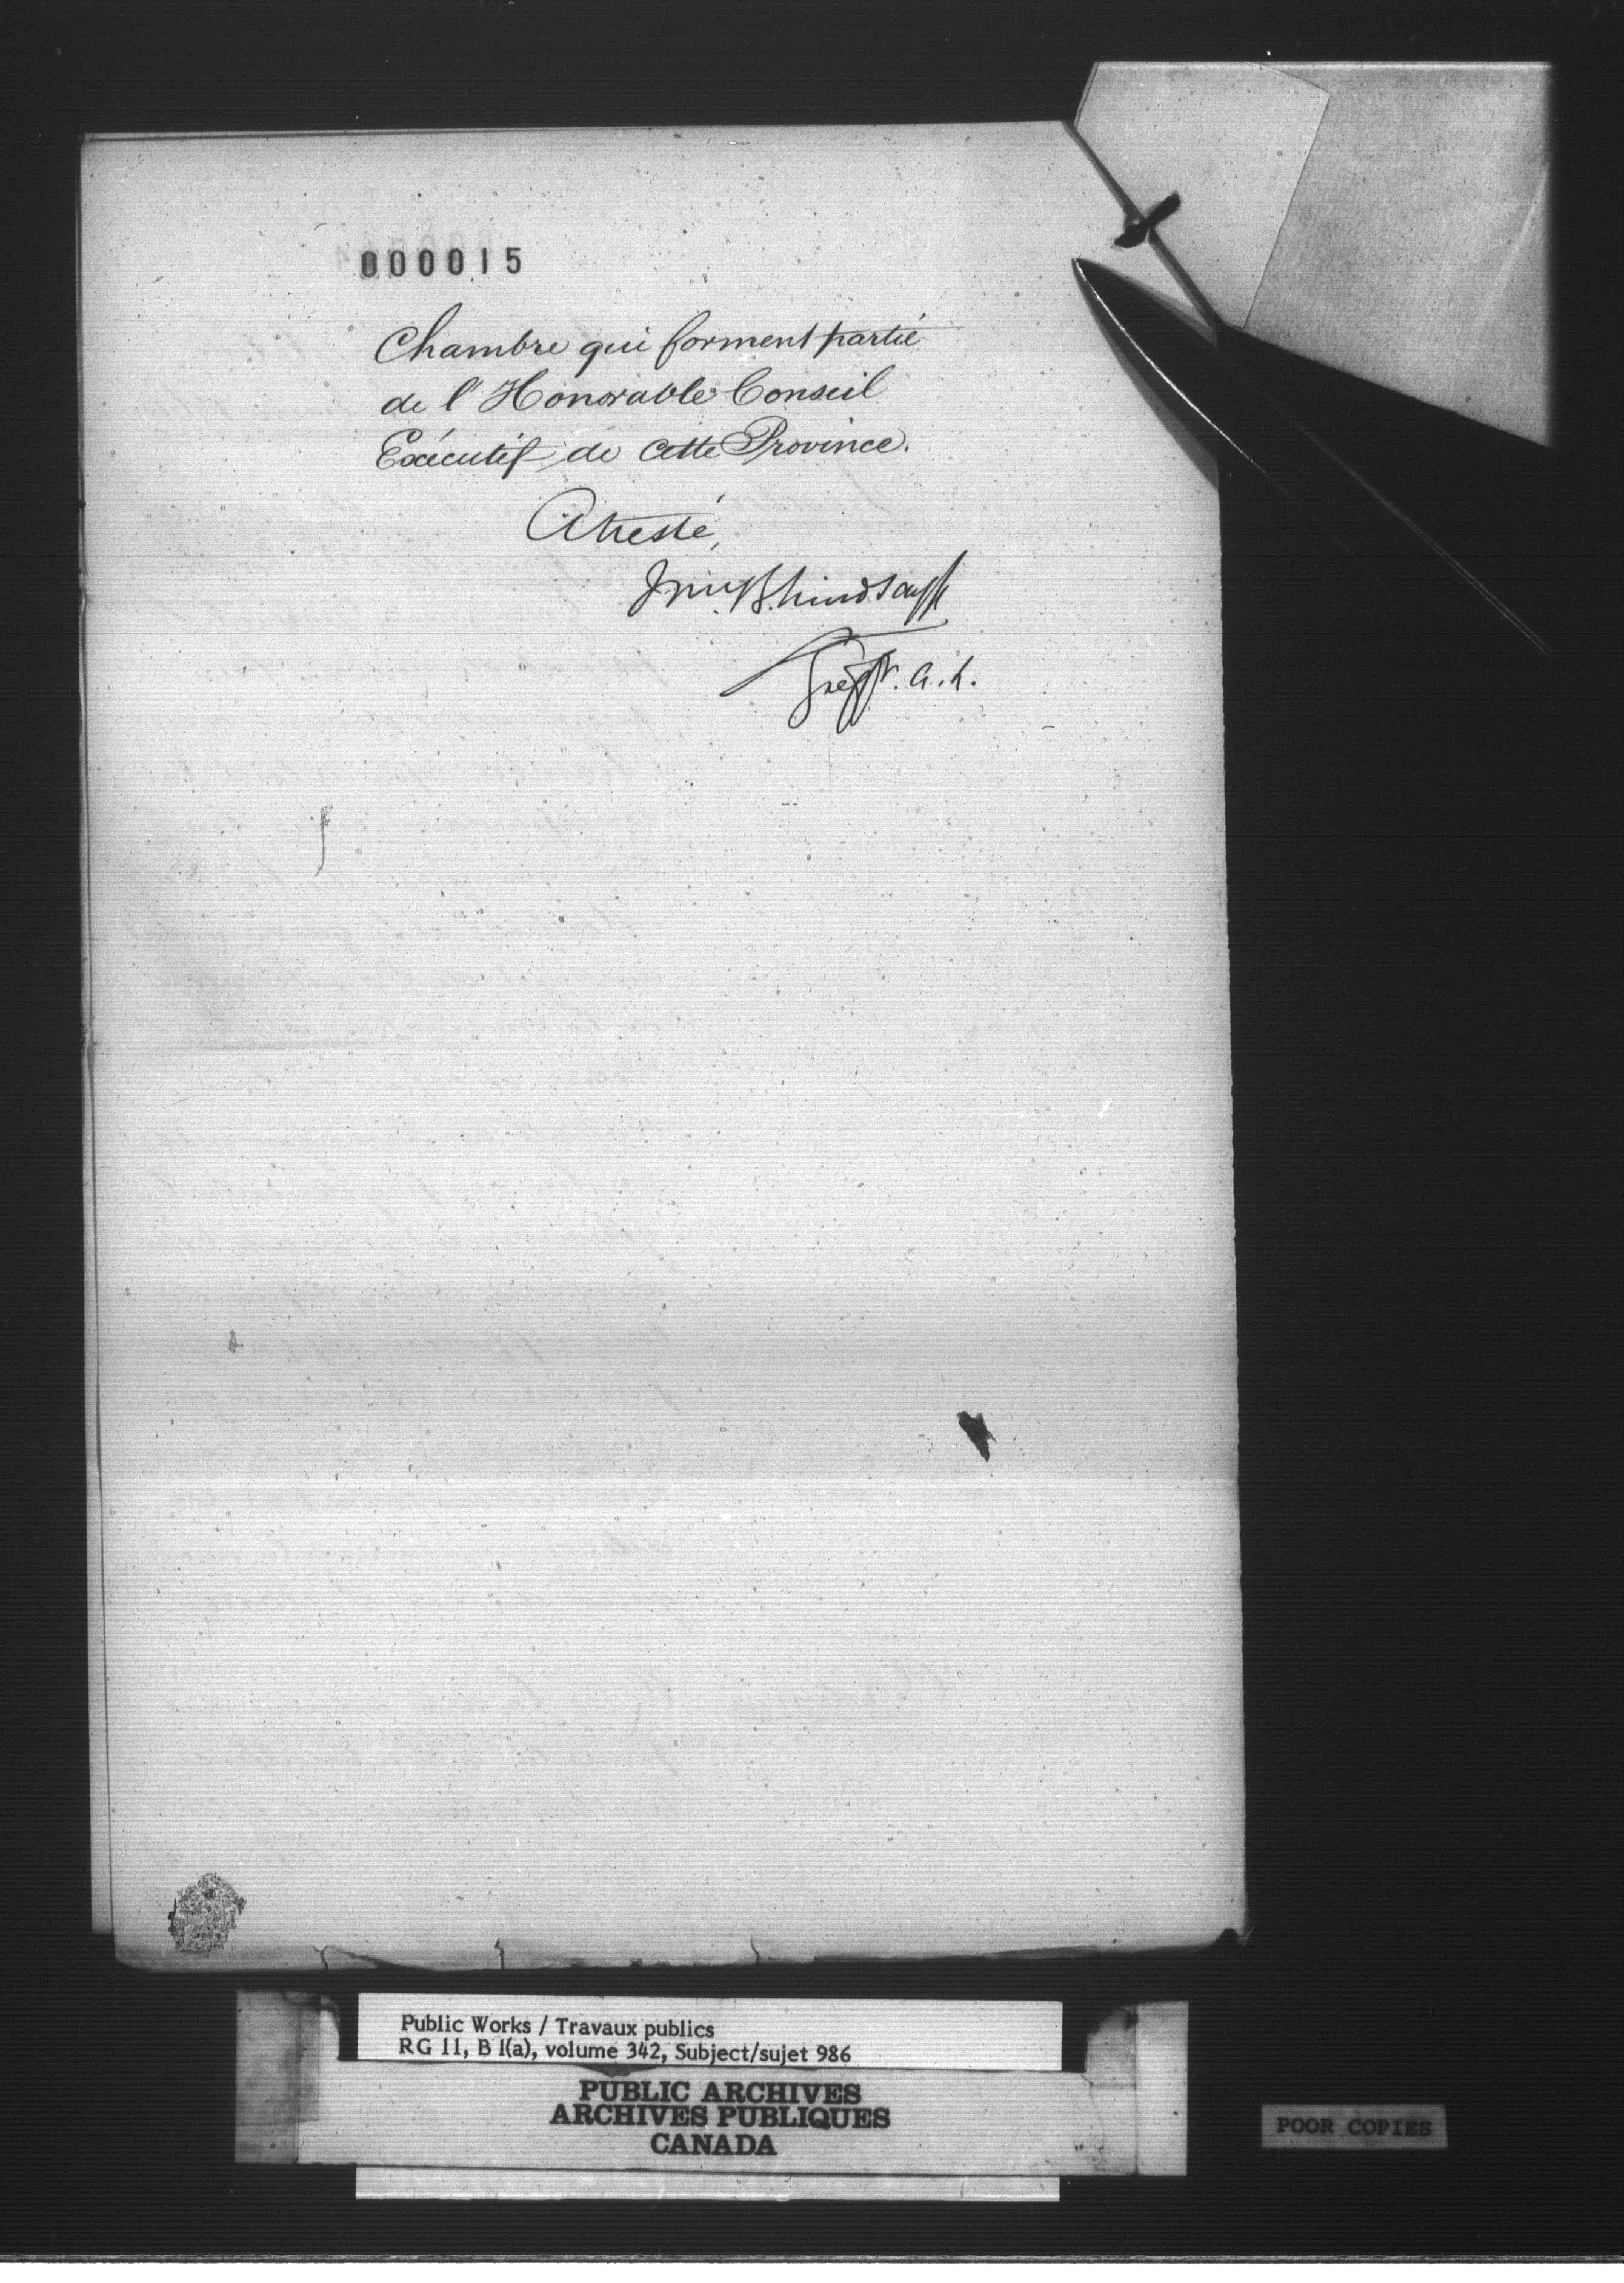 000015
Chambre qui forment partie
de l'Honorable Conseil
Exécutif de cette Province.
Attesté,
Wm. B. Lindsay
Greffr. A. L.
Public Works / Travaux publics
RG 11, B 1(a), volume 342, Subject/sujet 986
PUBLIC ARCHIVES
ARCHIVES PUBLIQUES
CANADA
POOR COPIES